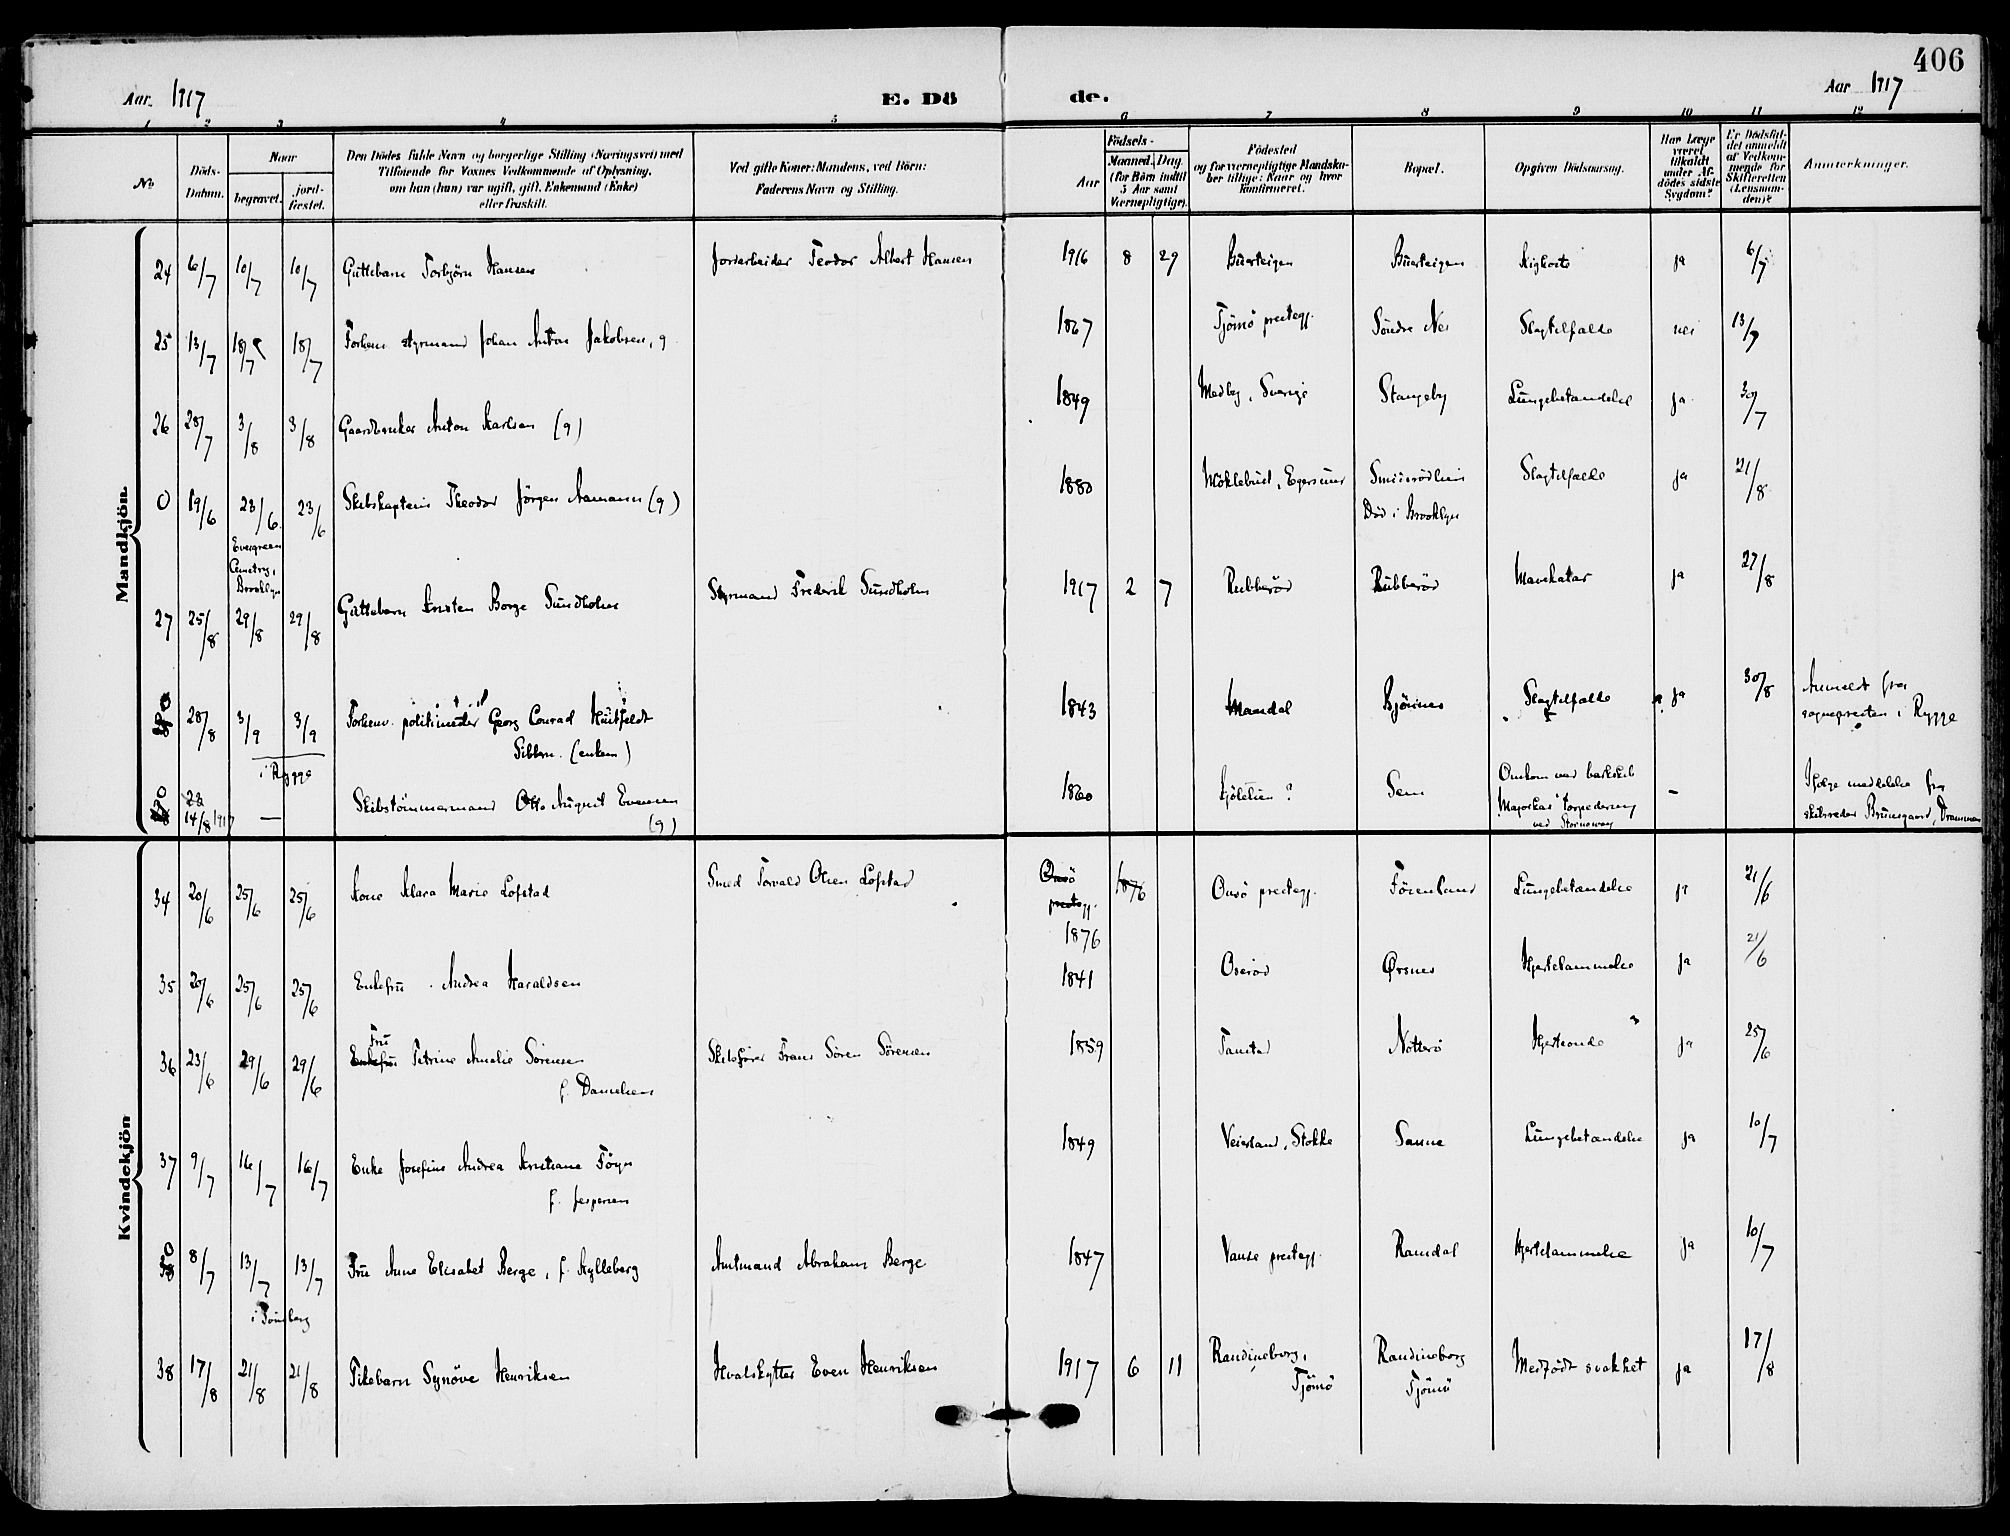 406
Aar 1917 E. Dö de. Aar 1917
1 2 3 4 5 6 7 8 9 10 11 12
No
Döds-Datum.
Naar
begravet. jord-fæstet.
Den Dödes fulde Navn og borgerlige Stilling (Næringsvei) med
Tilföiende for Voxnes Vedkommende af Oplysning,
om han (hun) var ugift, gift, Enkemand (Enke)
eller fraskilt.
Ved gifte Koner: Mandens, ved Börn:
Faderens Navn og Stilling.
Födsels-
Aar
Maaned. Dag.
(for Börn indtil
5 Aar samt
Værnepligtige).
Födested
og for værnepligtige Mandska-
ber tillige: Naar og hvor
konfirmeret.
Bopæl.
Opgiven Dödsaarsag.
Har Læge
været
tilkaldt
under Af-
dödes sidste
Sygdom?
Er Dödsfal-
det anmeldt
af Vedkom-
mende for
Skifteretten
(Lensman-
den)?
Anmærkninger.
Mandkjön.
24 6/7 10/7 10/7 Guttebarn Torbjörn Hansen Jordarbeider Teodor Albert Hansen 1916 8 29 Buerteigen Buerteigen Kighoste ja 6/7
25 13/7 18/7 18/7 Forhenv. styrmand Johan Anton Jakobsen, g 1867 Tjömö prestegj. Söndre Nes Slagtilfælde nei 13/7
26 28/7 3/8 3/8 Gaardbruker Anton Karlsen (g) 1849 Medby, Sverige Stangeby Lungebetændelse ja 30/7
0 19/6 23/6 23/6 Skibskaptein Theodor Jörgen Aamann (g) 1880 Möklebust, Egersund Smidsrödhei Slagtilfælde ja 21/8
Evergreen
Cemetry,
Brooklyn
Död i Brooklyn
27 25/8 29/8 29/8 Guttebarn Kristen Borge Sundholm Styrmand Frederik Sundholm 1917 2 7 Rubberöd Rubberöd Mavekatar ja 27/8
0 28/8 3/9 3/9 Forhenv. politimester Georg Conrad Huitfeldt
Sibbern. (enkem) 1843 Mandal Bjönnes Slagtilfælde ja 30/8 Anmeldt fra
sognepresten i Rygge
i Rygge
0 14/8 1917 — Skibstömmermand Otto August Evensen
(g) 1860 Kjölelien? Sem Omkom ved barkskib
"Majorkas" torpedering
ved Stornoway — Ifølge meddelelse fra
skibsreder Bruusgaard, Drammen
Kvindekjön
34 20/6 25/6 25/6 Kone Klara Marie Lofstad Smed Torvald Olsen Lofstad Onsö
prestegj. 1876
1876 Onsö prestegj. Förenland Lungebetændelse ja 21/6
35 20/6 25/6 25/6 Enkefru Andrea Haraldsen 1841 Oseröd Ørsnes Hjertelammelse ja 21/6
36 23/6 29/6 29/6 Fru
Enkefru Petrine Amalie Sörensen
f. Danielsen Skibsförer Frans Sören Sörensen 1859 Fanstad Nötterö Hjerteonde ja 25/6
37 9/7 16/7 16/7 Enke Josefine Andrea Kristiane Töyen
f. Jespersen 1849 Veierland, Stokke Sanne Lungebetændelse ja 10/7
0 8/7 13/7 13/7 Fru Anne Elisabet Berge, f. Kylleberg Amtmand Abraham Berge 1847 Vanse prestegj. Ramdal Hjertelammelse ja 10/7
i Tönsberg
38 17/8 21/8 21/8 Pikebarn Synöve Henriksen Hvalskytter Even Henriksen 1917 6 11 Randineborg,
Tjömö Randineborg
Tjömö Medfödt svakhet ja 17/8